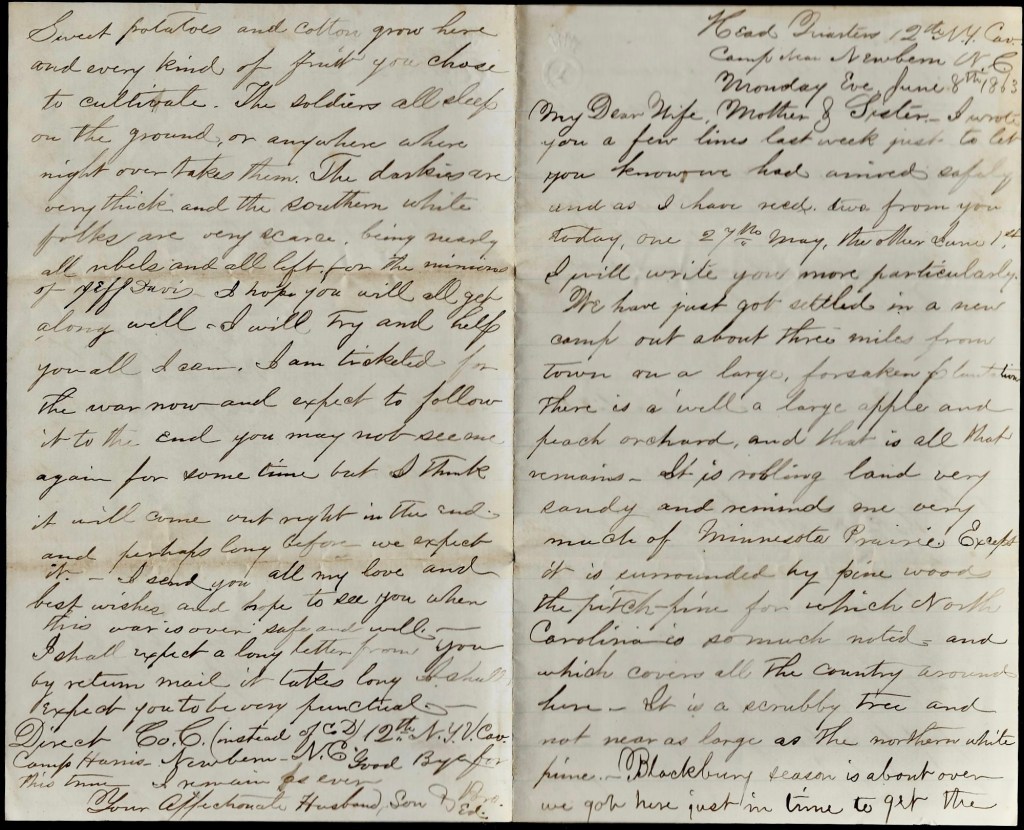 Head Quarters 12th N.Y. Cav.
Camp near Newbern N.C
Monday Eve, June 8th 1863
My Dear Wife, Mother & Sister,- I wrote
you a few lines last week just to let
you know we had arrived safely
and as I have recd. two from you
today, one 27th May, the other June 1st
I will write you more particularly.
We have just got settled in a new
camp out about three miles from
town on a large, forsaken plantation
there is a well a large apple and
peach orchard, and that is all that
remains - It is rolling land very
sandy and reminds me very
much of Minnesota Prairie Except
it is surrounded by pine woods
the pitch-pine for which North
Carolina is so much noted - and
which covers all the country around
here - It is a scrubby tree and
not near as large as the northern white
pine. - Blackbury season is about over
we got here just in time to get the
Sweet potatoes and cotton grow here
and every kind of fruit you chose
to cultivate. The soldiers all sleep
on the ground, or anywhere where
night over takes them. The darkies are
very thick and the southern white
folks are very scarce, being nearly
all rebels and all left for the minions
of Jeff Davis - I hope you will all get
along well - I will try and help
you all I can. I am ticketed for
the war now and expect to follow
it to the end you may not see me
again for some time but I think
it will come out right in the end -
and perhaps long before we expect
it. - I send you all my love and
best wishes and hope to see you when
this war is over safe and well -
I shall expect a long letter from you
by return mail it takes long I shall
Expect you to be very punctual -
Direct Co. C. (instead of C D) 12th N.Y.V. Cav.
Camp Harris - Newbern - N.C. Good Bye for
this time I remain as ever
Your Affectionate Husband, Son & Bro.
Ed.